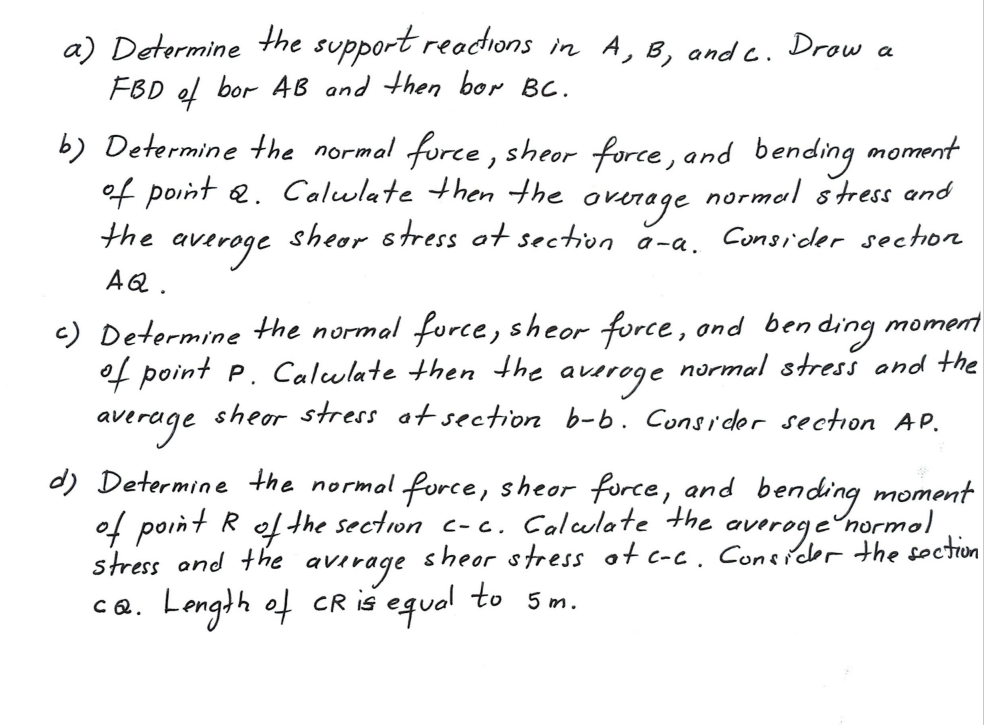 a) Determine the support reactions in A, B, and c. Draw a
FBD of bar AB and then bar BC.
b) Determine the normal force, shear force, and bending moment
of point Q. Calculate then the average normal stress and
the average shear stress at section a-a. Consider section
AQ.
c) Determine the normal force, shear force, and bending moment
of point P. Calculate then the average normal stress and the
average shear stress at section b-b. Consider section AP.
d) Determine the normal force, shear force, and bending moment
of point R of the section c-c. Calculate the average normal
stress and the average shear stress at c-c. Consider the section
CQ. Length of CR is equal to 5 m.